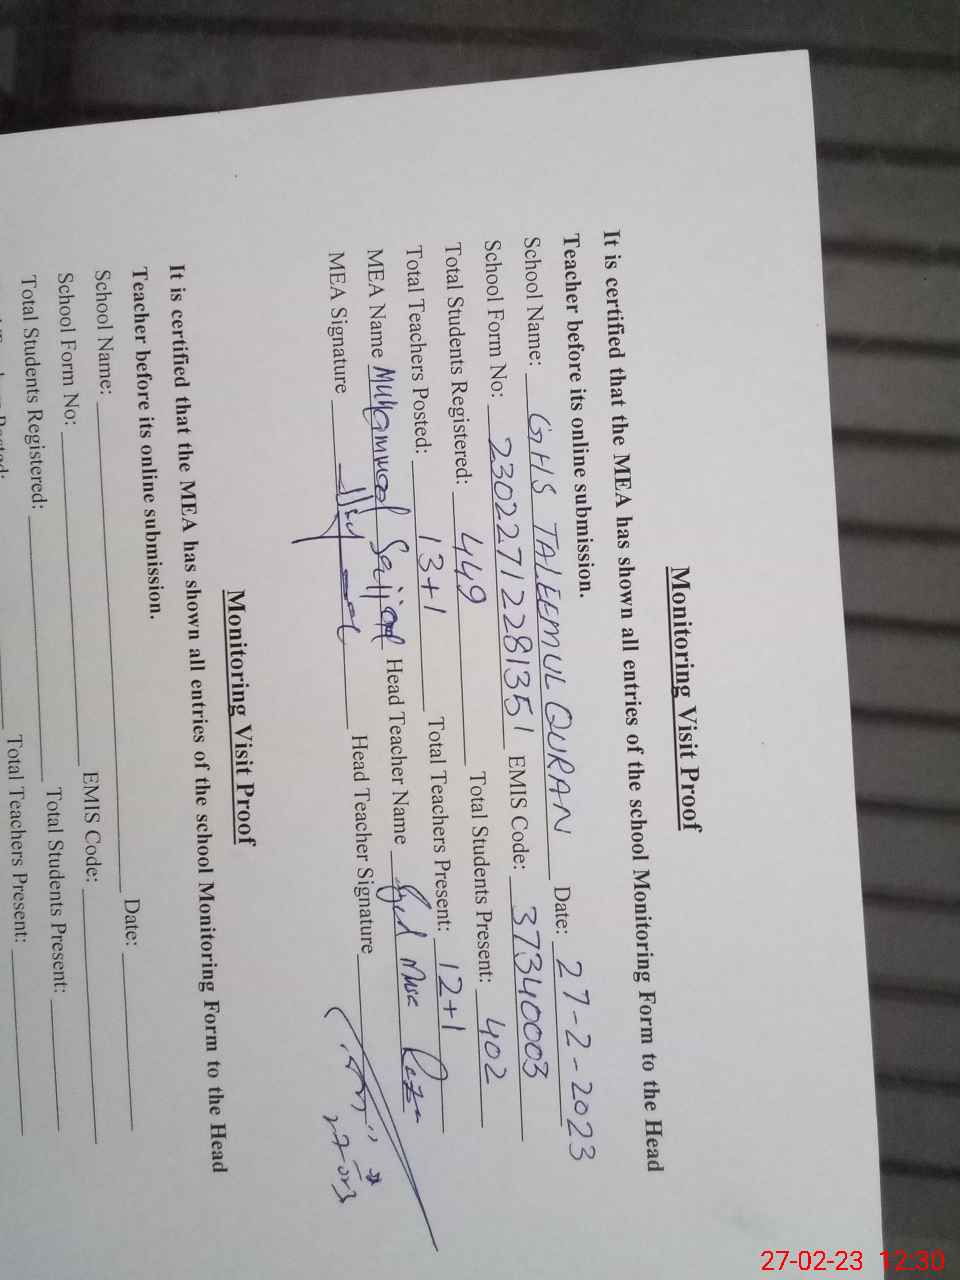 Monitoring Visit Proof
It is certified that the MEA has shown all entries of the school Monitoring Form to the Head
Teacher before its online submission.
School Name: GHS TALEEMUL QURAN Date: 27-2-2023
School Form No: 23022712281351 EMIS Code: 37340003
Total Students Registered: 449 Total Students Present: 402
Total Teachers Posted: 13+1 Total Teachers Present: 12+1
MEA Name Muhammad Sajjad Head Teacher Name Syed Musa Raza
MEA Signature Head Teacher Signature
Monitoring Visit Proof
It is certified that the MEA has shown all entries of the school Monitoring Form to the Head
Teacher before its online submission.
School Name: Date:
School Form No: EMIS Code:
Total Students Registered: Total Students Present:
Total Teachers Present:
27-02-23 12:30